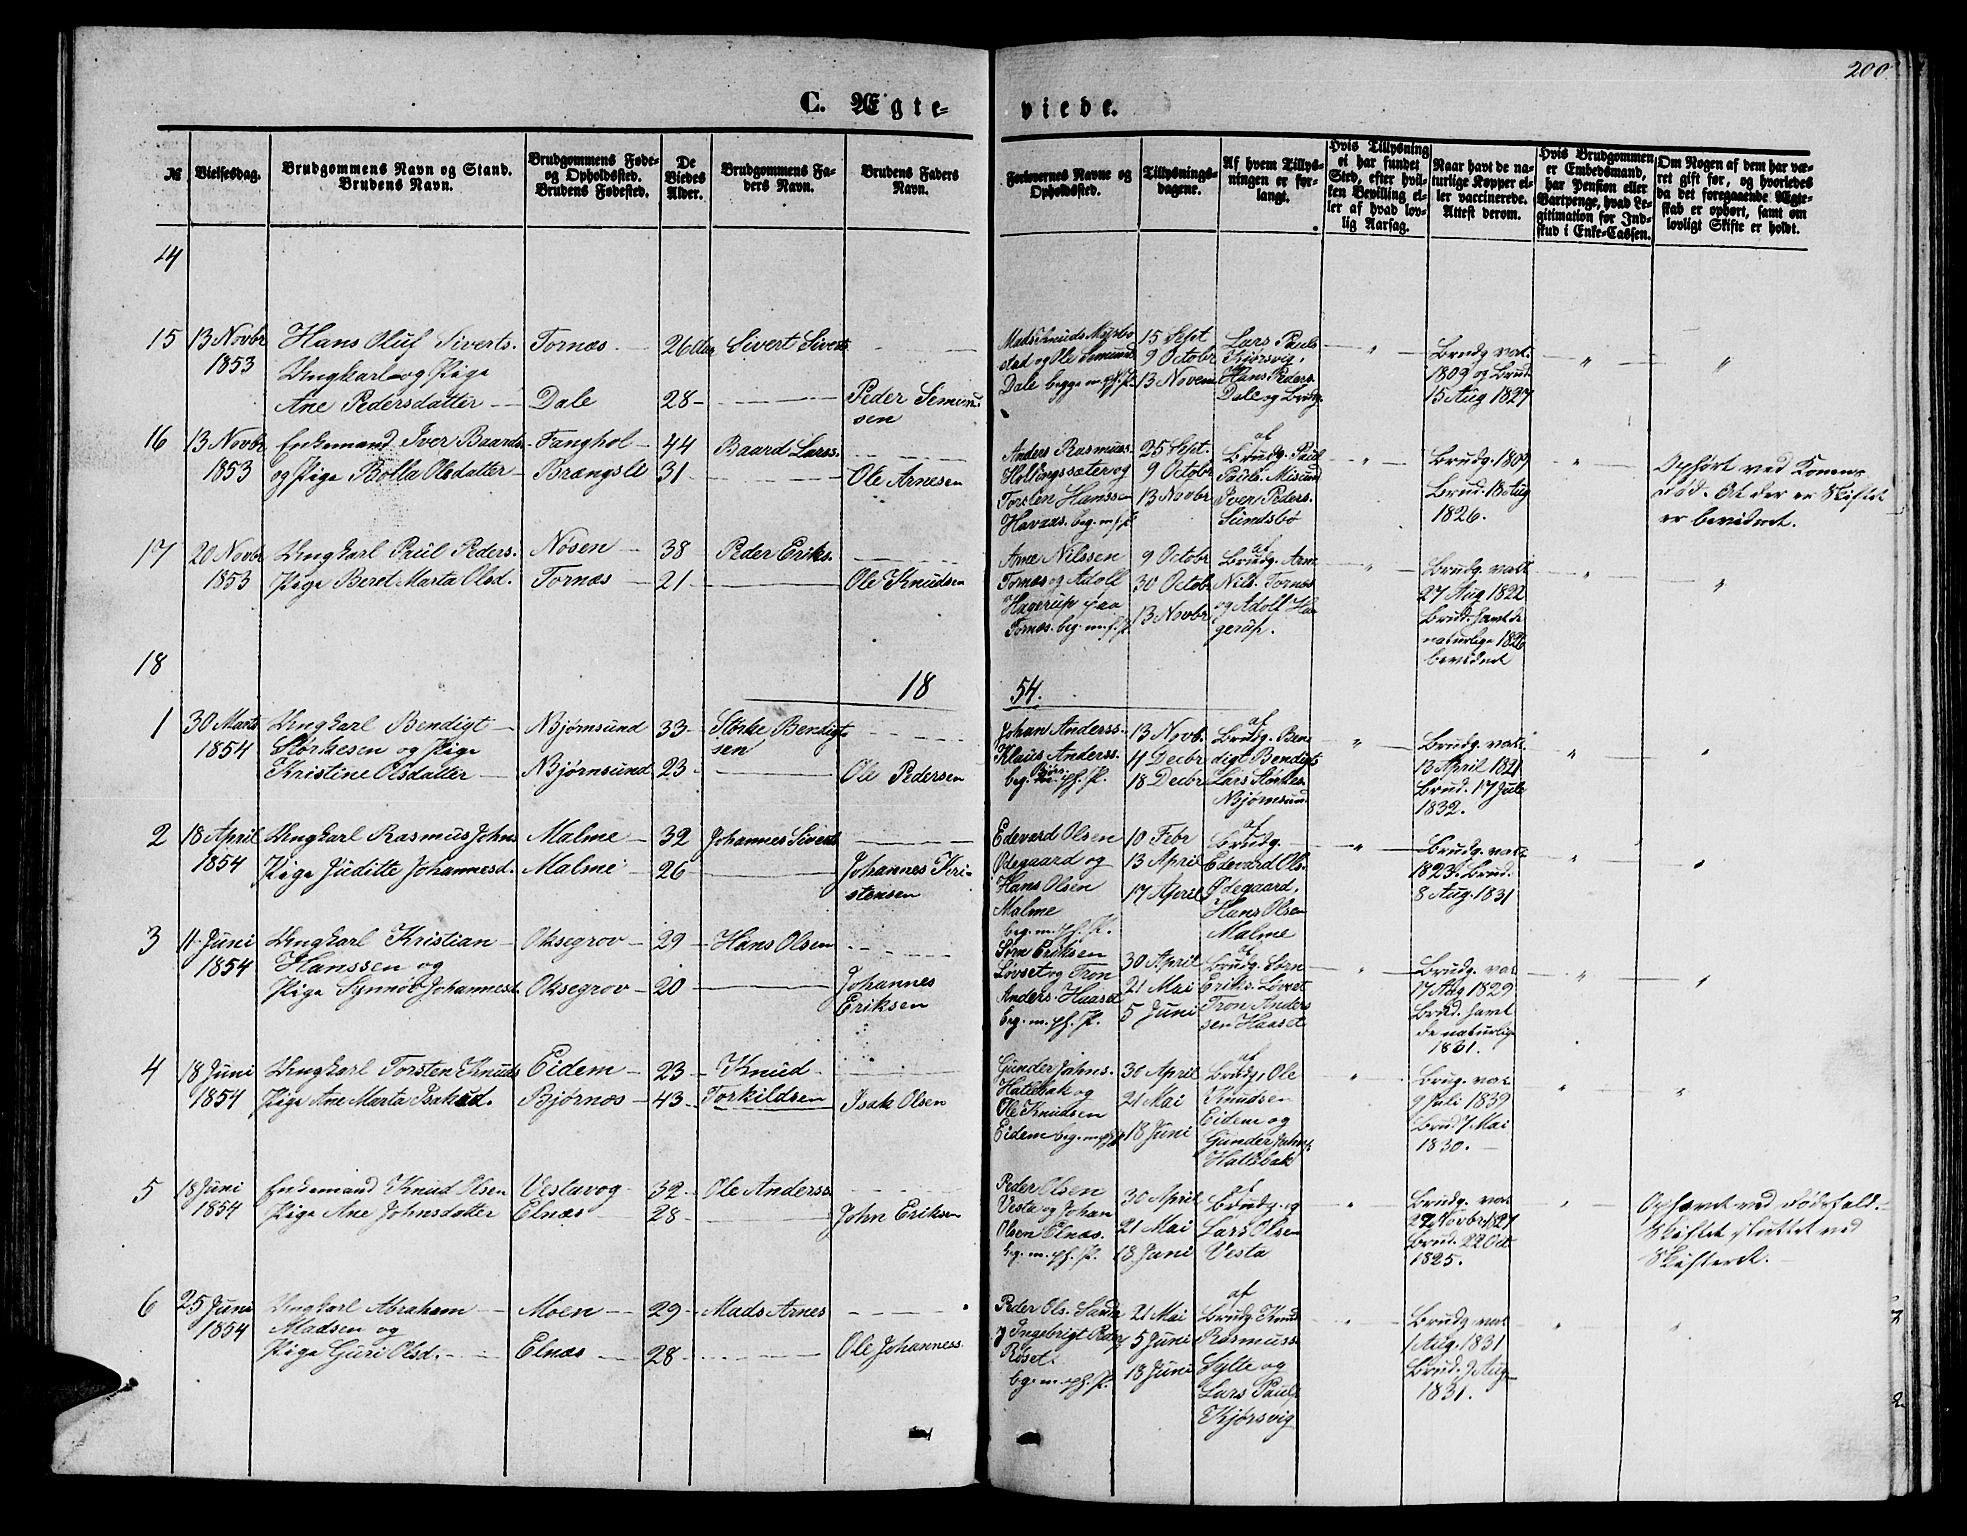 200
C. Ægte-
viede.
№
Vielsesdag.
Brudgommens Navn og Stand.
Brudens Navn.
Brudgommens Føde-
og Opholdssted.
Brudens Fødested.
De
Viedes
Alder.
Brudgommens Fa-
ders Navn.
Brudens Faders
Navn.
Forlovernes Navne og
Opholdssted.
Tillysnings-
dagene.
Af hvem Tillys-
ningen er for-
langt.
Hvis Tillysning
ei har fundet
Sted, efter hvil-
ken Bevilling el-
ler af hvad lov-
lig Aarsag.
Naar havt de na-
turlige Kopper el-
ler vaccinerede.
Attest derom.
Hvis Brudgommen
er Embedsmand,
har Pension eller
Vartpenge, hvad Le-
gitimation for Ind-
skud i Enke-Cassen.
Om Nogen af dem har væ-
ret gift før, og hvorledes
da det foregaaende Ægte-
skab er ophørt, samt om
lovligt Skifte er holdt.
14
15
13 Novbr
1853
Hans Oluf Siverts.
Ungkarl og Pige
Ane Pedersdatter
Tornæs
Dale
26
28
Sivert Siverts
Peder Semund
sen
Mads Knuds Mysbo
stad og Ole Semunds
Dale begge m. p. f. P.
15 Sept
9 Octobr
13 Novem
Lars Pauls
Kjørsvig,
Hans Peders.
Dale og Brudg.
Brudg vak.
1809 og Brud
15 Aug 1827
16
13 Novbr
1853
Enkemand Iver Baards.
og Pige Bolla Olsdatter
Fanghol
Brængsle
44
31
Baard Larss.
Ole Arnesen
Anders Rasmuss
Hollingssæter og
Torsten Hanssen
Havaas. beg. m. f. P.
25 Sept.
9 Octobr
13 Novbr
af
Brudg. Paul
Pauls. Misund
Iver Peders.
Sundsbø
Brudg. 1809
Brud. 18 Aug
1826.
Ophørt ved Konens
Død. At der er Skiftet
er bevidnet.
17
20 Novbr
1853
Ungkarl Poul Peders.
Pige Beret Marta Olsd.
Nøsen
Tornæs
38
21
Peder Eriks.
Ole Knudsen
Arne Nilssen
Tornæs og Adolf
Hagerup paa
Tornæs. beg. m. f. P.
9 Octobr
30 Octob
13 Novbr
af
Brudg. Arne
Nils. Tornæs
og Adolf Ha
gerup.
Brudg. vakt
27 Aug 1822
Brud. havt de
naturlige 1826
bevidnet
18
18
54.
1
30 Marts
1854
Ungkarl Bendigt
Størkesen og Pige
Kristine Olsdatter
Bjørnsund
Bjørnsund
33
23
Størke Bendigt
sen
Ole Pedersen
Johan Anderss.
Klaus Anderss.
Bjør.
beg. m. pf. P.
13 Novb.
11 Decbr
18 Decbr
af
Brudg. Ben
digt Bendigts
Lars Størkes.
Bjørnsund
Brudg. vak.
13 April 1821
Brud. 17 Juli
1832.
2
18 April
1854
Ungkarl Rasmus Johns
Pige Juditte Johannesd.
Malme
Malme
32
26
Johannes Siverts
Johannes Kri-
stensen
Edevard Olsen
Ødegaard og
Hans Olsen
Malme
beg. m. pf. P.
10 Febr
13 April
17 April
af
Brudg.
Edevard Ols.
Ødegaard,
Hans Olsen
Malme
Brudg. vak.
1823. Brud.
8 Aug. 1831
3
11 Juni
1854
Ungkarl Kristian
Hanssen og
Pige Synnøv Johannesd.
Oksegrov
Oksegrov
29
20
Hans Olsen
Johannes
Eriksen
Sørn Eriksen
Løvset og Tron
Anders. Haaset
beg. m. pf. P.
30 April
21 Mai
5 Juni
af
Brudg. Sørn
Eriks. Løvset
Tron Anders
sen Haaset
Brudg. vak
17 Aug 1829
Brud. havt
de naturlige
1831.
4
18 Juni
1854
Ungkarl Torsten Knuds
Pige Ane Marta Isaksd.
Eidem
Bjørnøs
23
43
Knud
Torkildsen
Isak Olsen
Gunder Jahns.
Hatlebak og
Ole Knudsen
Eidem beg. m. pf. P.
30 April
21 Mai
18 Juni
af
Brudg, Ole
Knudsen
Eidem og
Gunder Jahns.
Hatlebak
Brug. vak.
9 Juli 1839
Brud 7 Mai
1830.
5
18 Juni
1854
Enkemand Knud Olsen
Pige Ane Johnsdatter
Vestavog
Elnæs
32
28
Ole Anderss.
John Eriksen
Peder Olsen
Vesta og Johan
Olsen Elnæs.
beg. m. pf. P.
30 April
21 Mai
18 Juni
af
Brudg. og
Lars Olsen
Vesta
Brudg. vak
22 Novbr 1821
Brud. 22 Oct
1825.
Ophævet ved Dødsfald.
Skiftet sluttet ved
Skifteret.
6
25 Juni
1854
Ungkarl Abraham
Madsen og
Pige Guri Olsd.
Moen
Elnæs
29
28
Mads Arnes
Ole Johanness
Peder Ols. Sanda
og Ingebrigt Peder
Røset.
beg. m. pf. P.
21 Mai
5 Juni
18 Juni
af
Brudg. Knud
Rasmuss
Hylle og
Lars Pauls
Kjørsvig
Brudg vak
1 Aug. 1831
Brud. 9 Aug
1831.